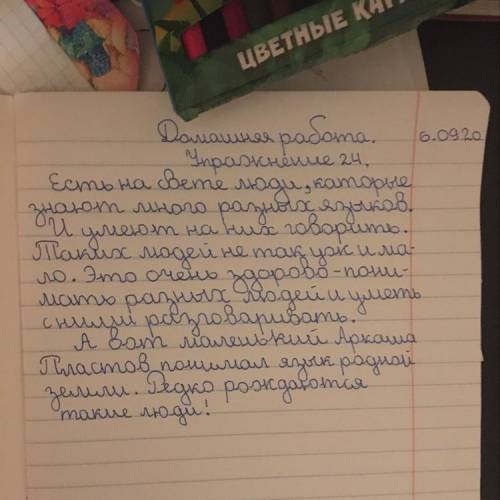 ЦВЕТНЫЕ КАР
Домашняя работа. 6.09.20
Упражнение 24.
Есть на свете люди, каторые
знают много разных языков.
И умеют на них говорить.
Таких людей не так уж и ма-
ло. Это очень здорово-пони-
мать разных людей и уметь
с ними разговаривать.
А вот маленький Аркаша
Пластов понимал язык родной
земли. Редко рождаются
такие люди!